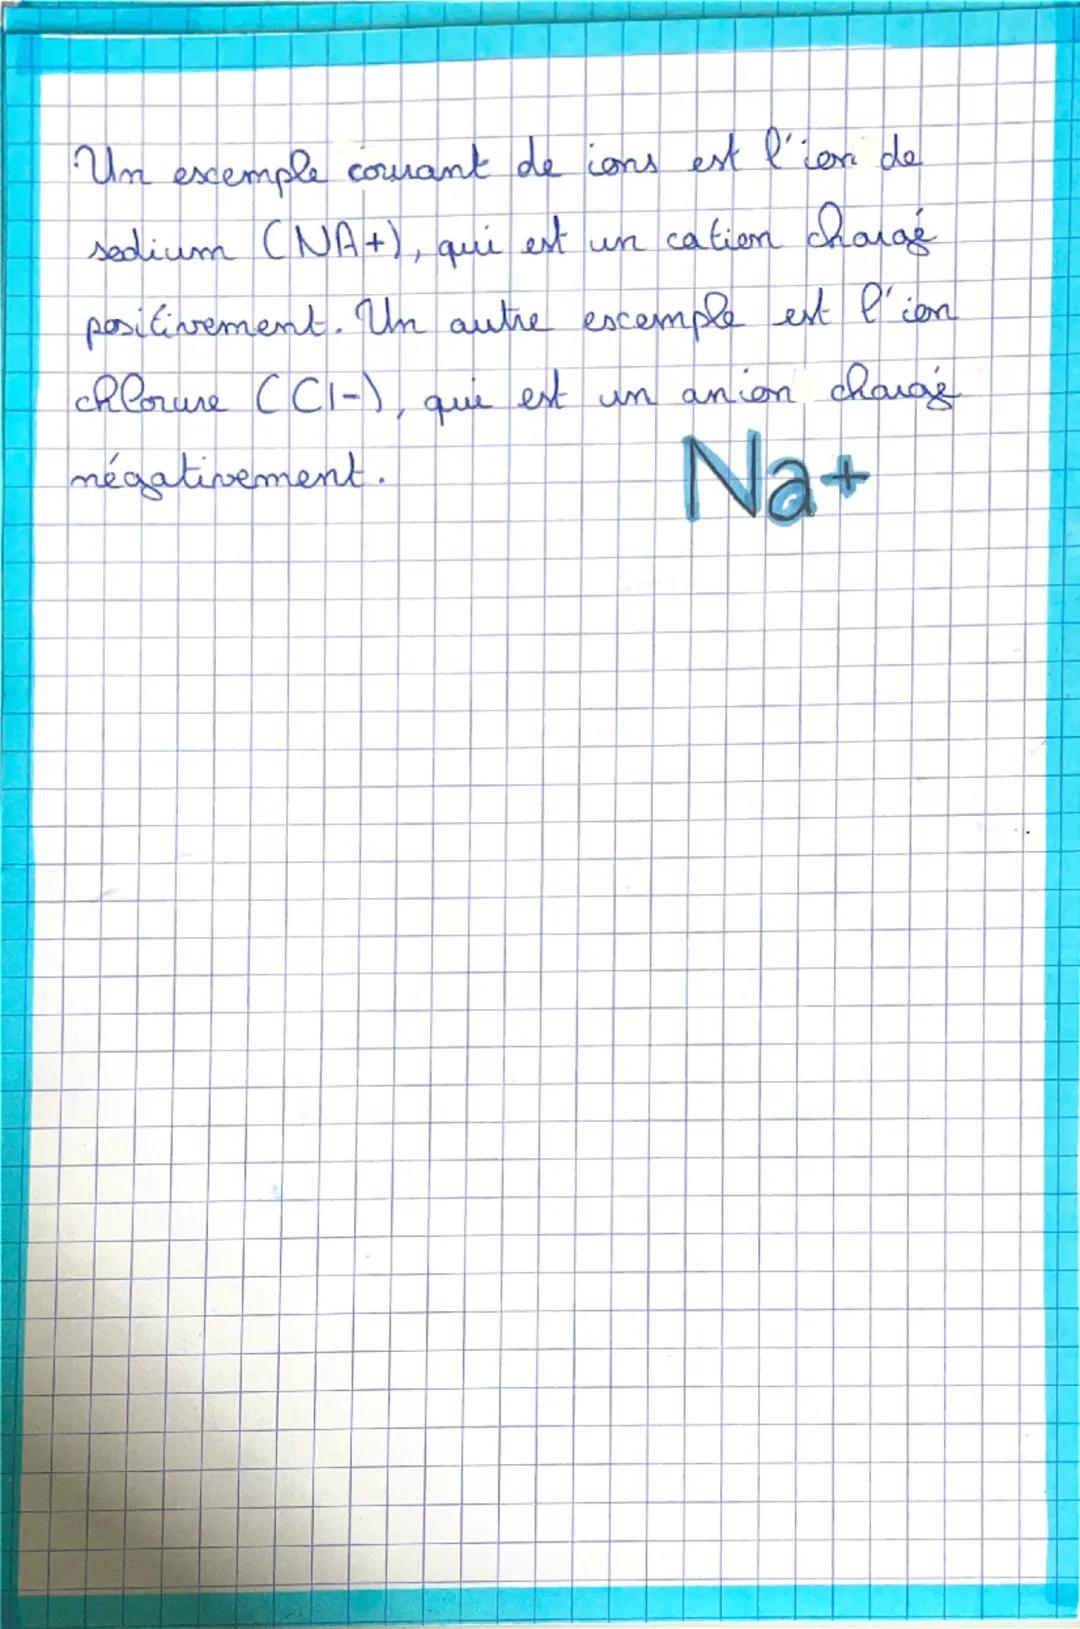 Un exemple courant de ions est l'ion de
sodium (NA+), qui est un cation chargé
positivement. Un autre exemple est l'ion
chlorure (Cl-), qui est un anion chargé
négativement.
Na+